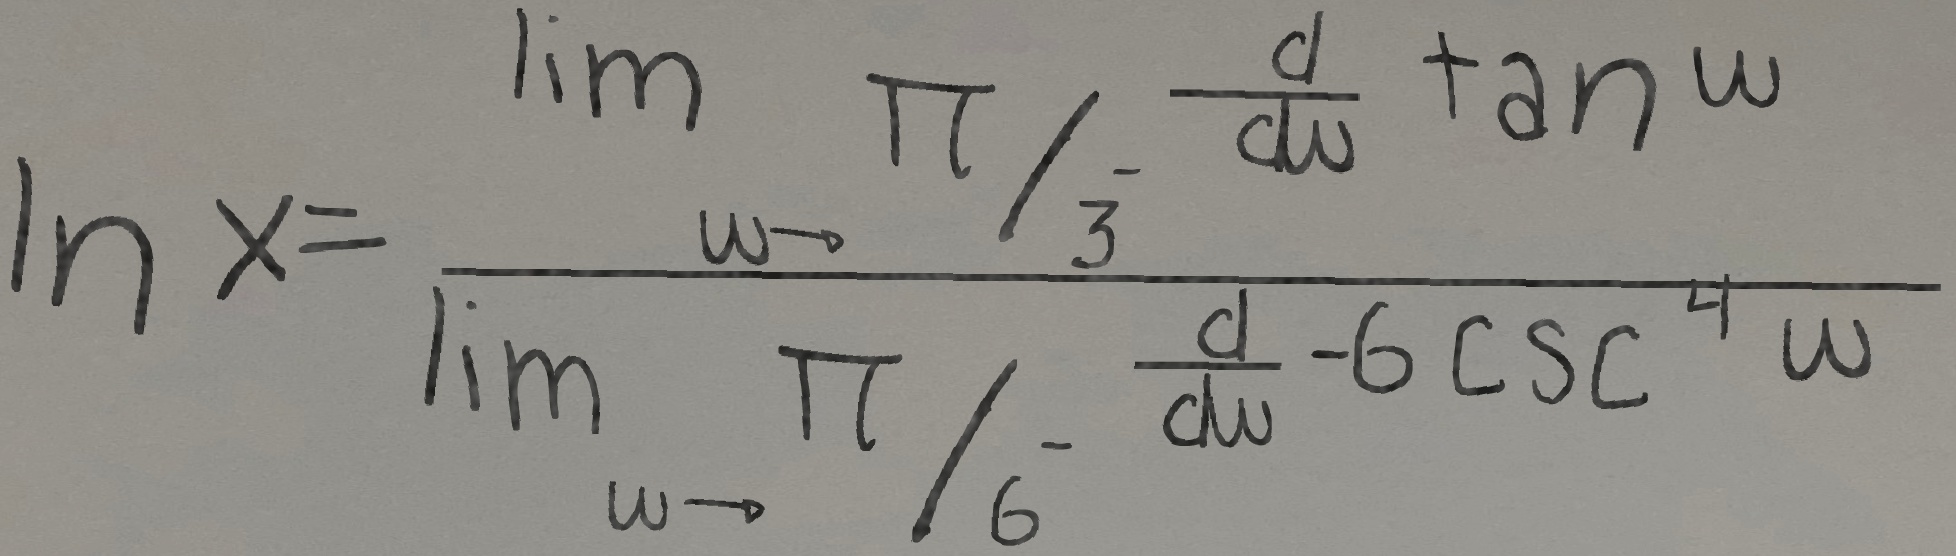 ln x = \frac{\lim_{w \to \pi/3^-} \frac{d}{dw} \tan w}{\lim_{w \to \pi/6^-} \frac{d}{dw} -6 \csc^4 w}